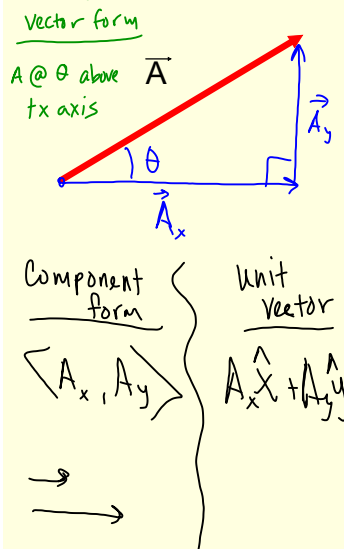 Vector form
A @ θ above
+x axis
A⃗
θ
A⃗y
A⃗x
Component
form
Unit
vector
⟨Ax, Ay⟩
Axx̂ + Ayŷ